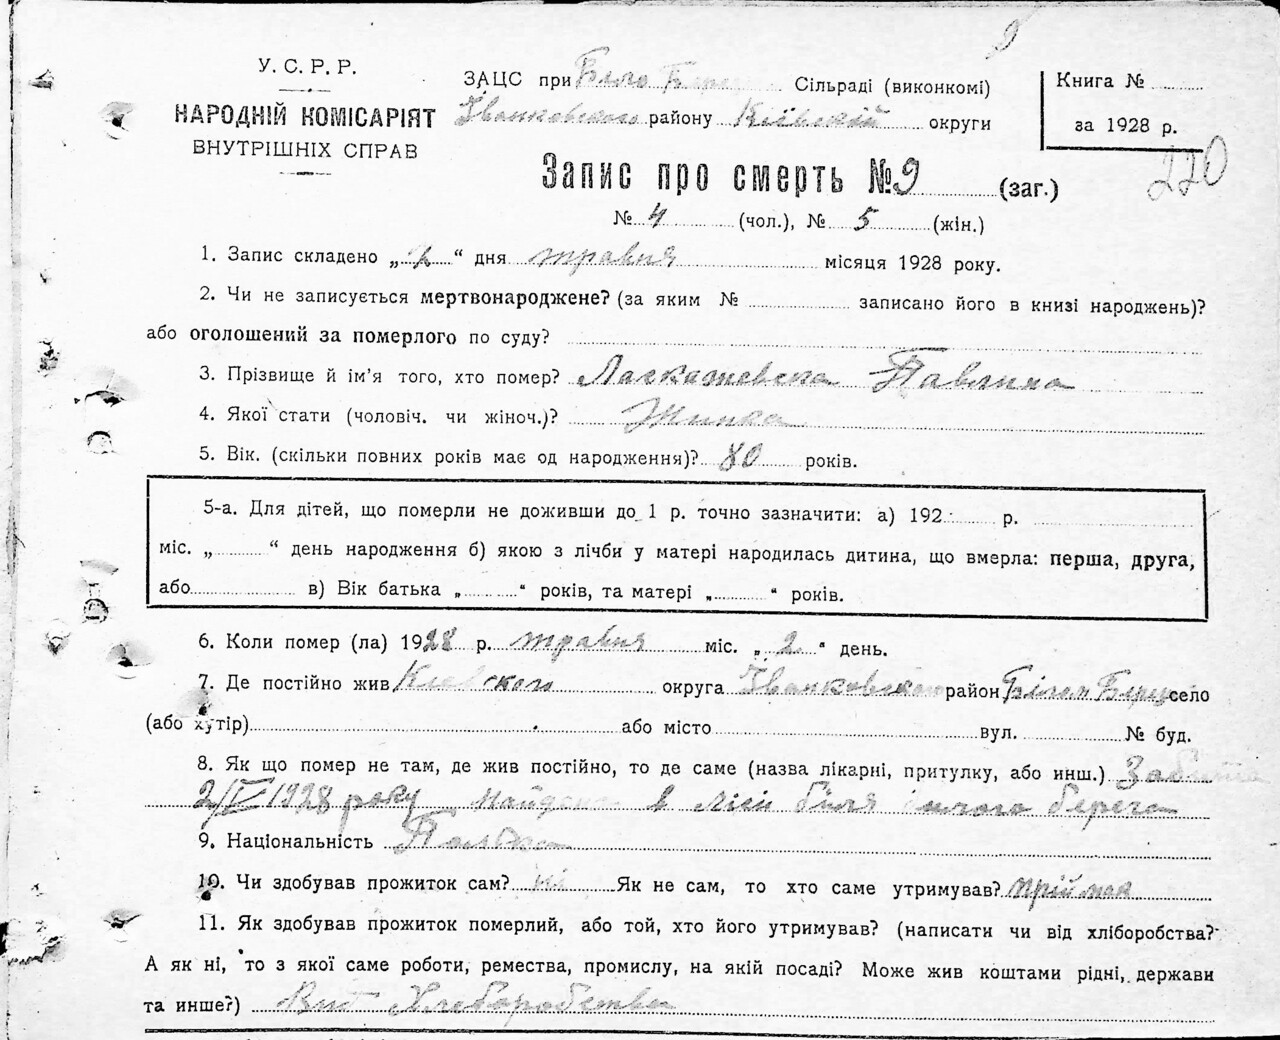 9
У. С. Р. Р.
НАРОДНІЙ КОМІСАРІЯТ
ВНУТРІШНІХ СПРАВ
ЗАЦС при Біло Бере Сільраді (виконкомі)
Іванковского району Київскій округи
Книга №
за 1928 р.
220
Запис про смерть № 9 (заг.)
№ 4 (чол.), № 5 (жін.)
1. Запис складено „2“ дня травня місяця 1928 року.
2. Чи не записується мертвонароджене? (за яким № записано його в книзі народжень)?
або оголошений за померлого по суду?
3. Прізвище й ім’я того, хто помер? Павлина
4. Якої стати (чоловіч. чи жіноч.)? Жинка
5. Вік. (скільки повних років має од народження)? 80 років.
5-а. Для дітей, що померли не доживши до 1 р. точно зазначити: а) 192 р.
міс. „ “ день народження б) якою з лічби у матері народилась дитина, що вмерла: перша, друга,
або в) Вік батька „ “ років, та матері „ “ років.
6. Коли помер (ла) 1928 р. травня міс. „2“ день.
7. Де постійно жив Киевского округа Іванковского район, село
(або хутір) або місто вул. № буд.
8. Як що помер не там, де жив постійно, то де саме (назва лікарні, притулку, або инш.) Забита
2/V 1928 року найдена в лісі біля берега
9. Національність Полька
10. Чи здобував прожиток сам? ні Як не сам, то хто саме утримував? приймак
11. Як здобував прожиток померлий, або той, хто його утримував? (написати чи від хліборобства?
А як ні, то з якої саме роботи, ремества, промислу, на якій посаді? Може жив коштами рідні, держави
та инше?) Вит Хлеборобства